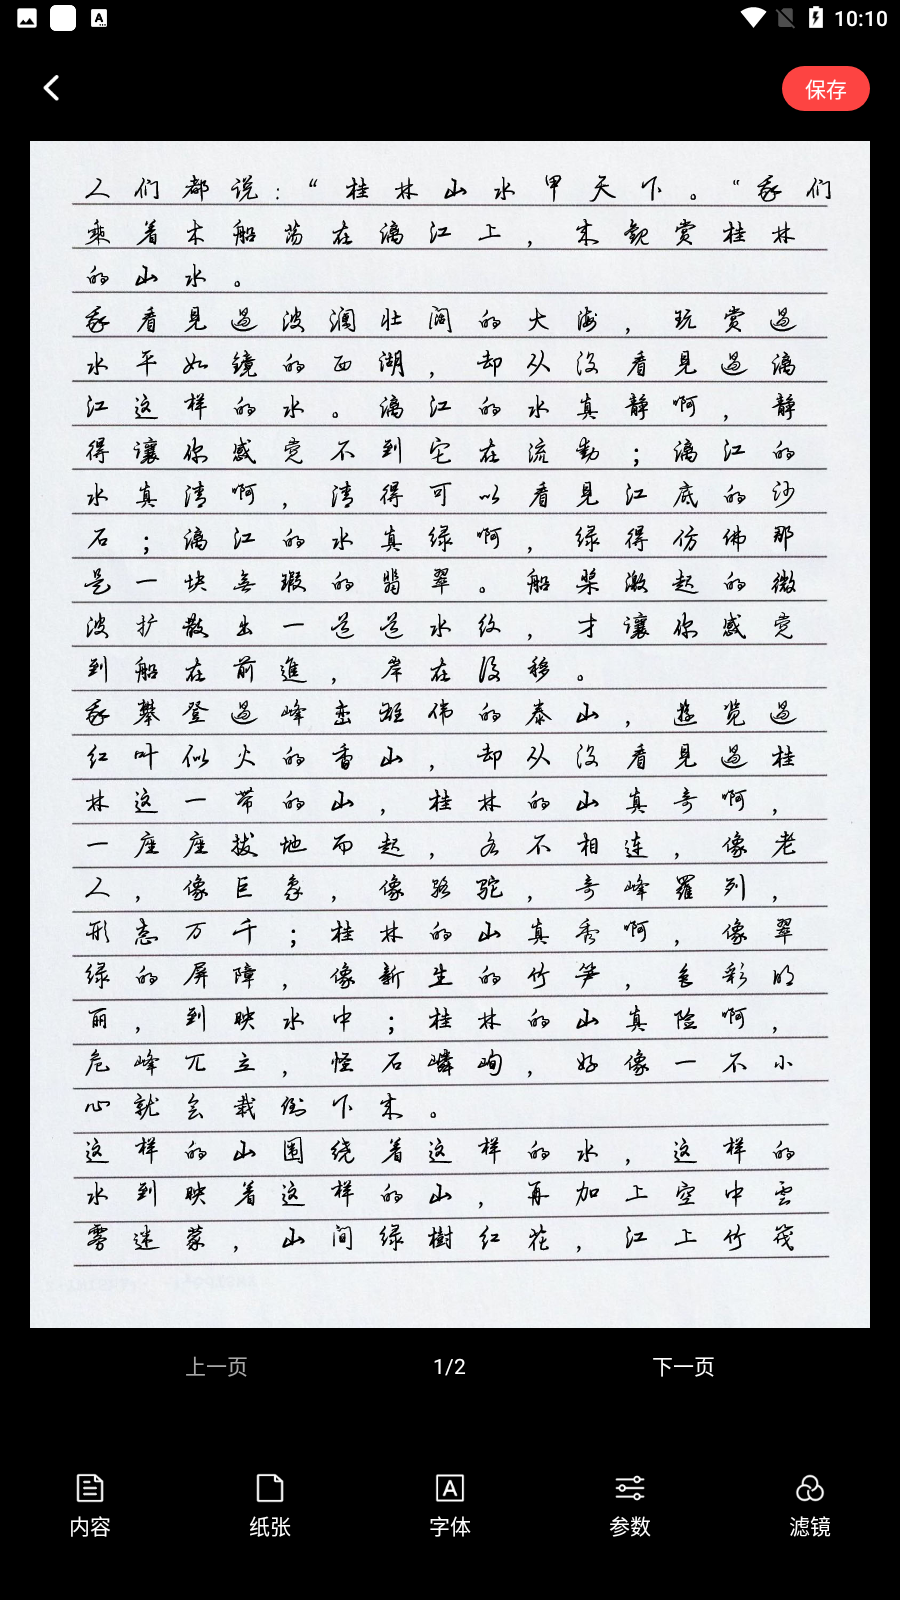 10:10
保存
人们都说：“桂林山水甲天下。“我们
乘着木船荡在漓江上，来观赏桂林
的山水。
我看見過波澜壮阔的大海，玩赏過
水平如镜的西湖，却从没看見過漓
江这样的水。漓江的水真静啊，静
得讓你感觉不到它在流動；漓江的
水真清啊，清得可以看見江底的沙
石；漓江的水真绿啊，绿得仿佛那
是一块無瑕的翡翠。船桨激起的微
波扩散出一道道水纹，才讓你感觉
到船在前進，岸在後移。
我攀登過峰峦雄伟的泰山，遊览過
红叶似火的香山，却从没看見過桂
林这一带的山，桂林的山真奇啊，
一座座拔地而起，各不相连，像老
人，像巨象，像骆驼，奇峰羅列，
形态万千；桂林的山真秀啊，像翠
绿的屏障，像新生的竹笋，色彩明
丽，到映水中；桂林的山真险啊，
危峰兀立，怪石嶙峋，好像一不小
心就会栽倒下来。
这样的山围绕着这样的水，这样的
水到映着这样的山，再加上空中雲
雾迷蒙，山间绿樹红花，江上竹筏
上一页 1/2 下一页
内容 纸张 字体 参数 滤镜